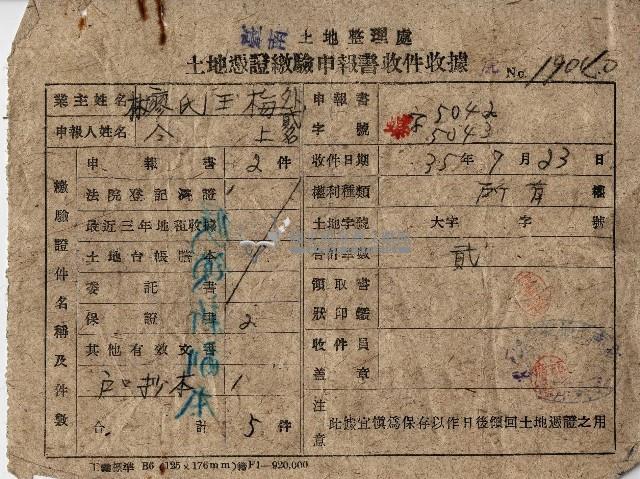 土地整理處
土地憑證繳驗申報書收件收據
No. 19040
業主姓名 林廖氏王梅外貳名
申報人姓名 仝上
申報書字號 5042 5043
繳驗證件名稱及件數
申報書 2件
法院登記濟證 1
最近三年地租收據
土地台帳謄本
委託書
保證書 2
其他有效文書
戶口抄本 1
合計 5件
收件日期 35年7月23日
權利種類 所有權
土地字號 大字 字 號
合計筆數 貳
領取書狀印鑑
收件員蓋章
注意 此據宜慎爲保存以作日後領回土地憑證之用
B6 (125×176mm) F1—920,000